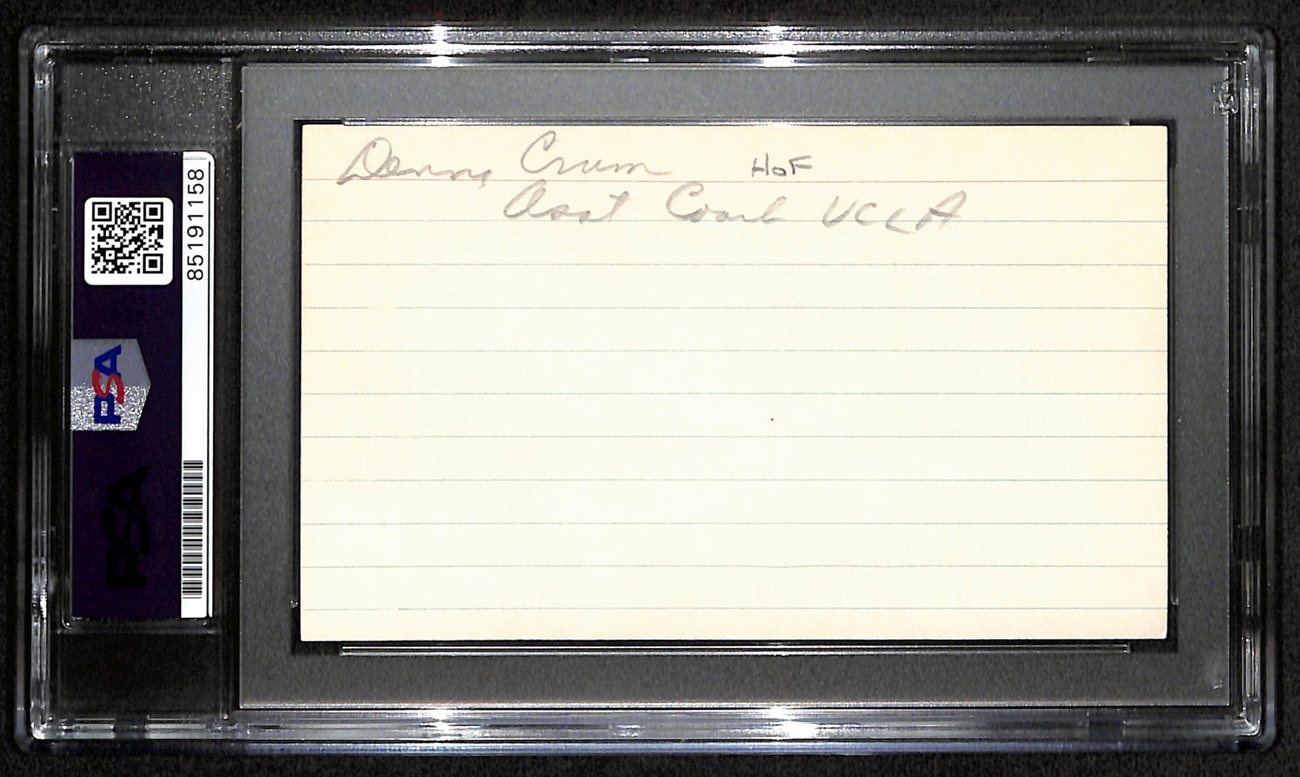 Denny Crum HOF
Asst Coach UCLA
85191158
PSA
PSA